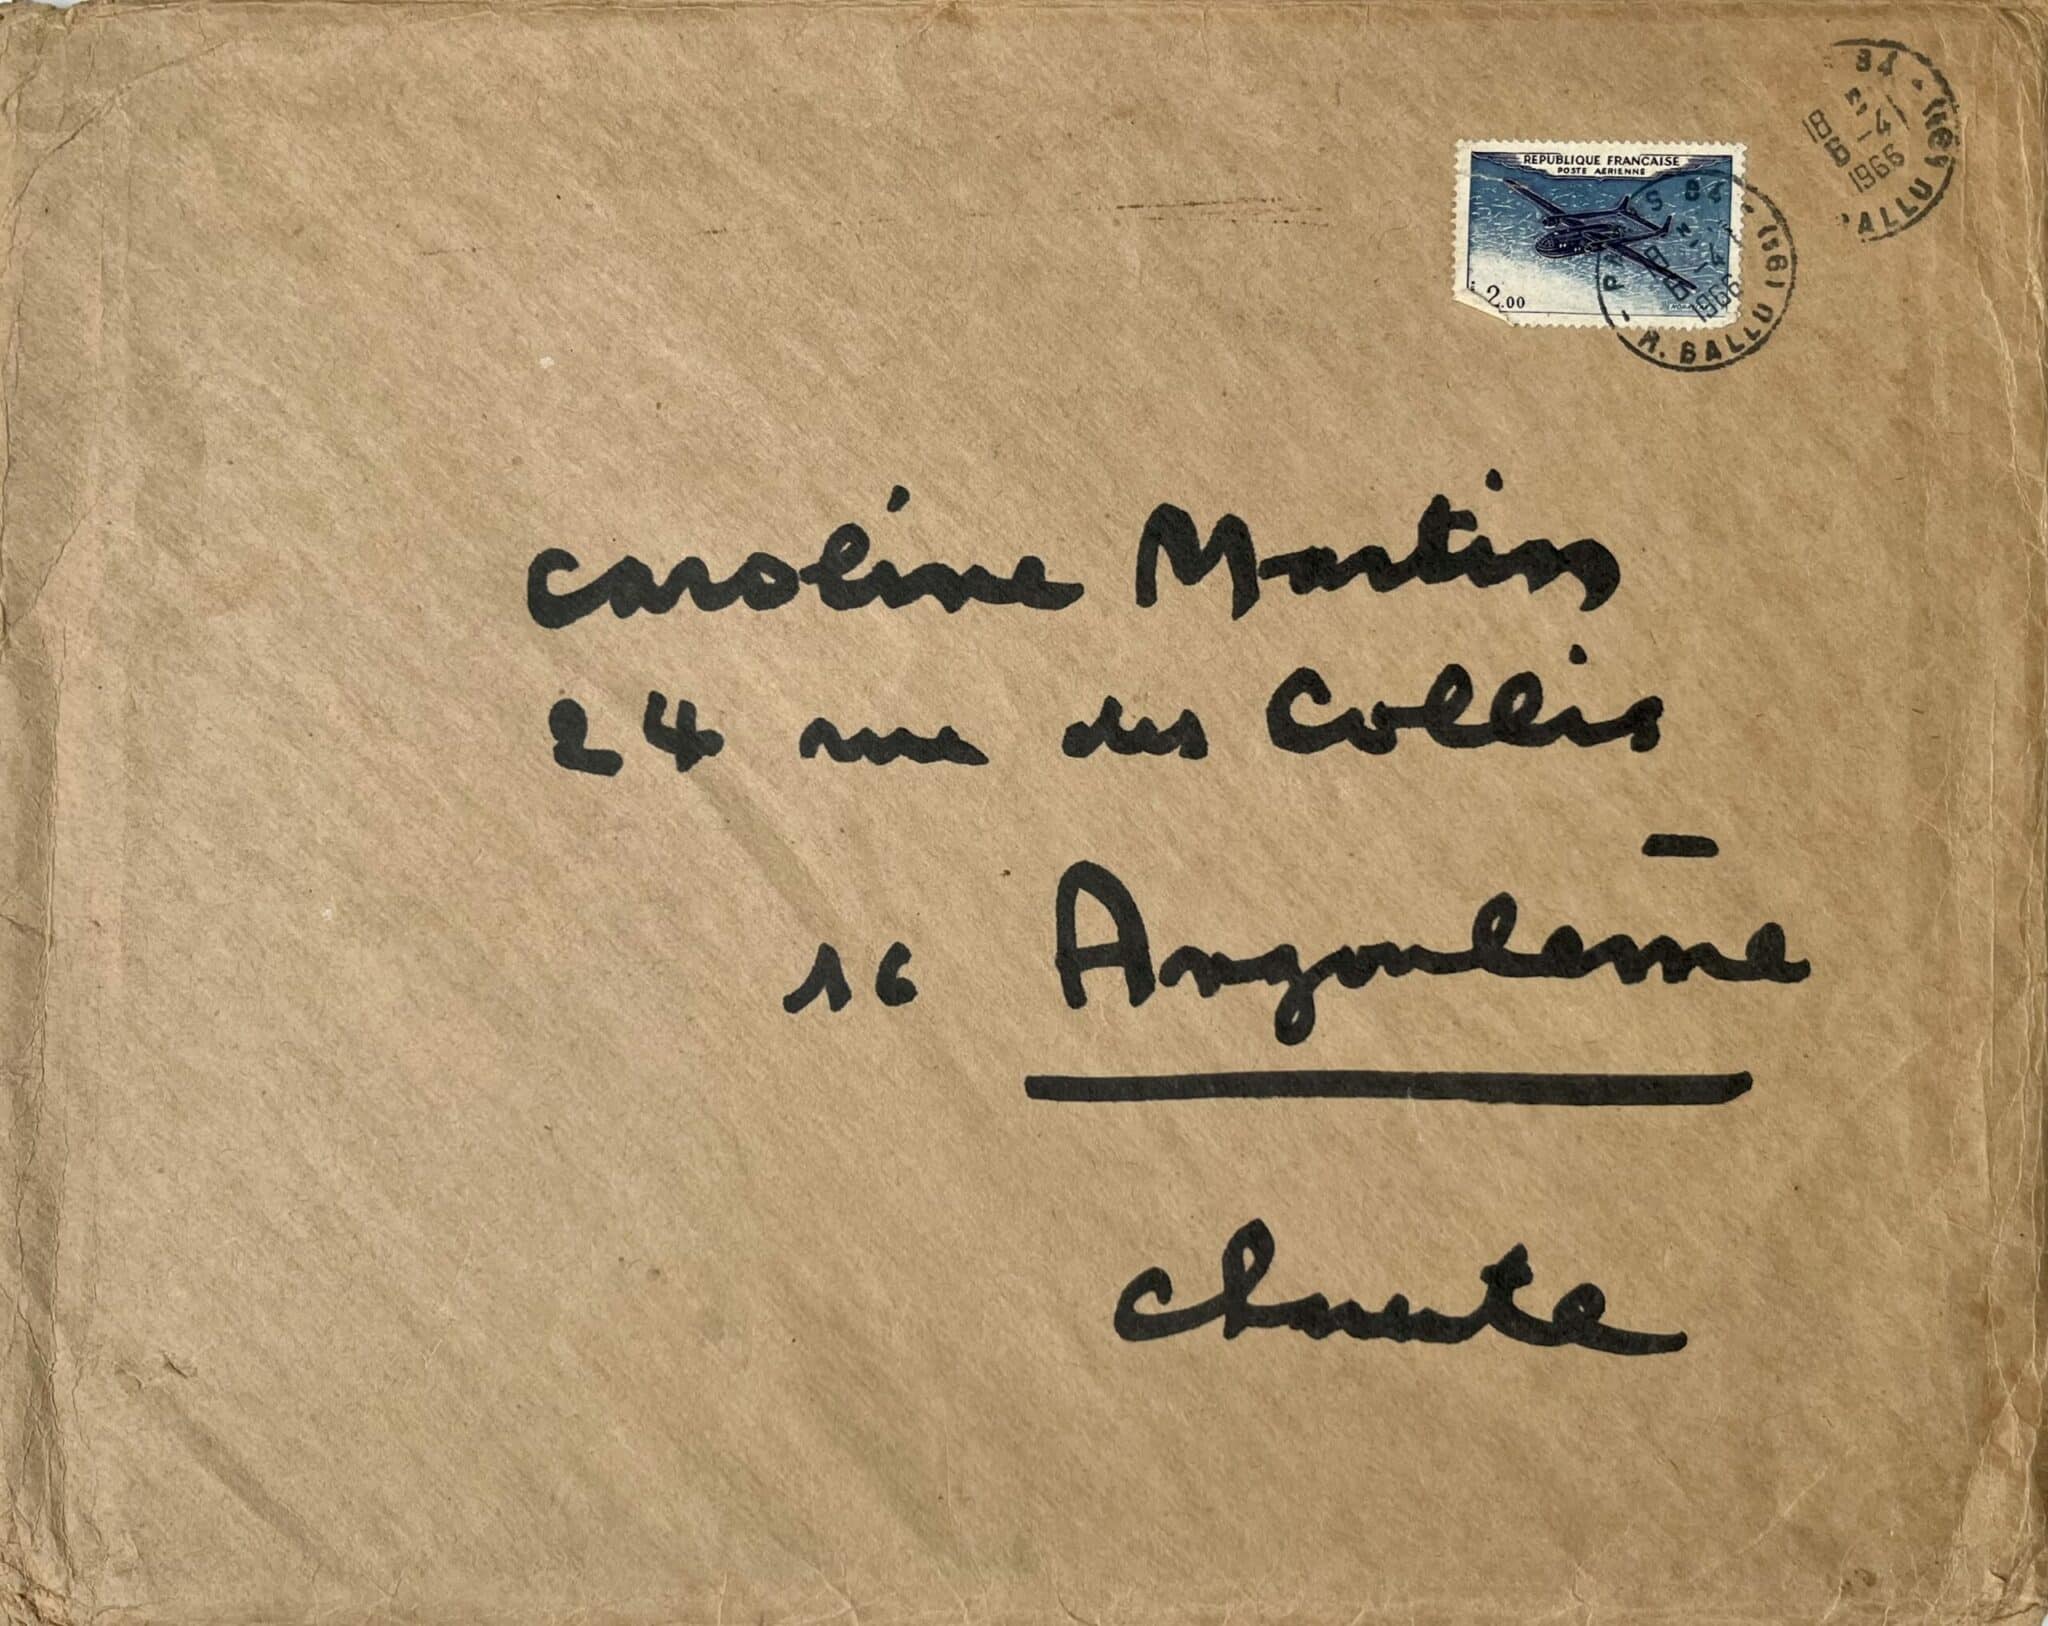 REPUBLIQUE FRANÇAISE
POSTE AERIENNE
2.00
PARIS 84 (9E)
18 H
1966
R. BALLU
84 (9E)
18 H
-4
1966
BALLU
Caroline Martin
24 rue des Collis
16 Angouleme
Charente